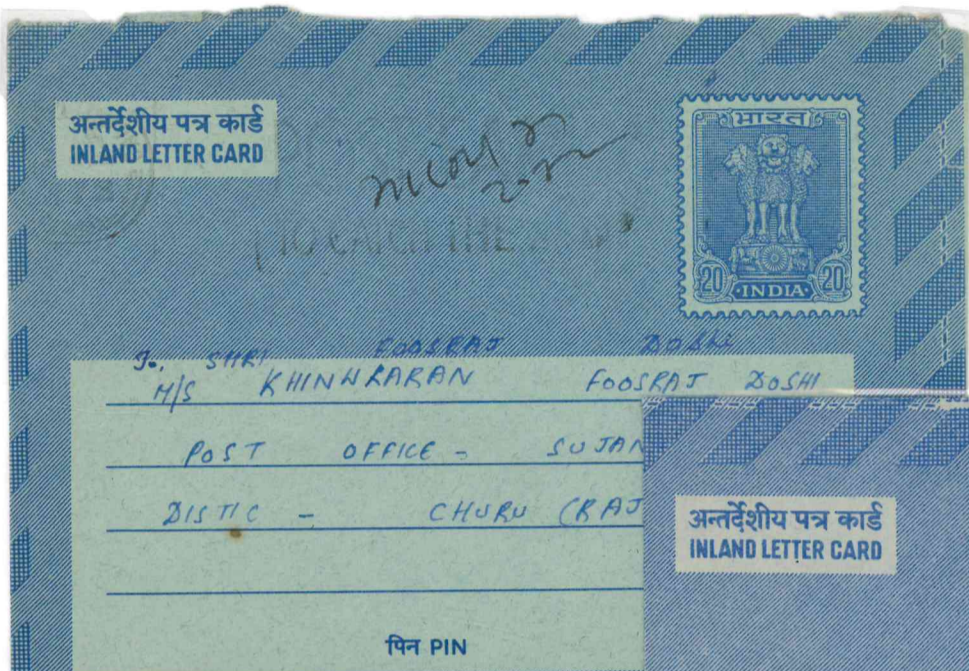 अन्तर्देशीय पत्र कार्ड
INLAND LETTER CARD
भारत
20 20
INDIA
To, SHRI FOOSRAJ DOSHI
M/S KHINWKARAN FOOSRAJ DOSHI
POST OFFICE - SUJAN
DISTIC - CHURU (RAJ
पिन PIN
अन्तर्देशीय पत्र कार्ड
INLAND LETTER CARD